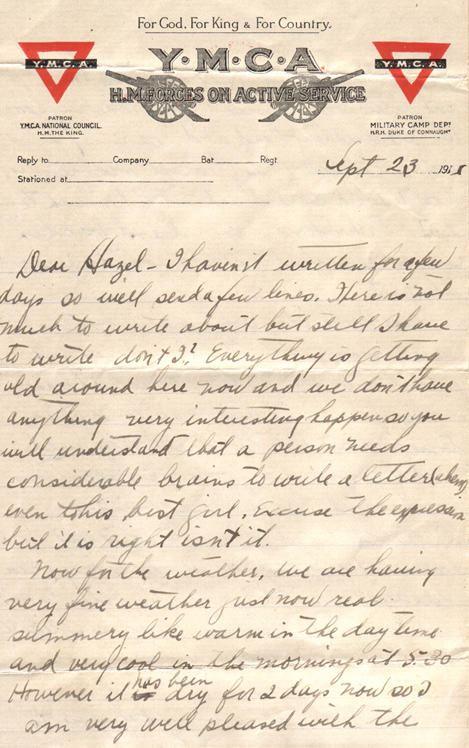 For God, For King & For Country.
Y·M·C·A
H.M. FORCES ON ACTIVE SERVICE
Y.M.C.A.
Y.M.C.A.
PATRON
Y.M.C.A. NATIONAL COUNCIL.
H.M. THE KING.
PATRON
MILITARY CAMP DEPT
H.R.H. DUKE OF CONNAUGHT
Reply to Company Bat Regt.
Stationed at
Sept 23 191
Dear Hazel - I haven't written for a few
days so will send a few lines. There is not
much to write about but still I have
to write don't I? Everything is getting
old around here now and we don't have
anything very interesting happen so you
will understand that a person needs
considerable brains to write a letter (ahem)
even to his best girl. Excuse the expression
but it is right isn't it.
Now for the weather, we are having
very fine weather just now real
summery like warm in the day time
and very cool in the mornings at 5:30
However it has been dry for 2 days now so I
am very well pleased with the